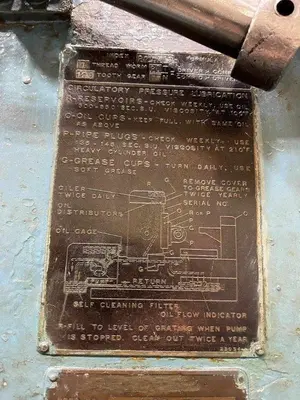 INDEX
THREAD WORM
TOOTH GEAR
CIRCULATORY PRESSURE LUBRICATION
RESERVOIRS - CHECK WEEKLY, USE OIL
SEC. S.U. VISCOSITY AT 100°F
O-OIL CUPS - KEEP FULL, WITH SAME OIL
AS ABOVE
P-PIPE PLUGS - CHECK WEEKLY. USE
SEC. S.U. VISCOSITY AT 210°F
HEAVY CYLINDER OIL
G-GREASE CUPS - TURN DAILY, USE
SOFT GREASE
OILER
TWICE DAILY
REMOVE COVER
TO GREASE GEARS
TWICE YEARLY
OIL
DISTRIBUTORS
SERIAL NO.
R OR P
OIL GAGE
RETURN
SELF CLEANING FILTER
OIL FLOW INDICATOR
R-FILL TO LEVEL OF GRATING WHEN PUMP
IS STOPPED. CLEAN OUT TWICE A YEAR